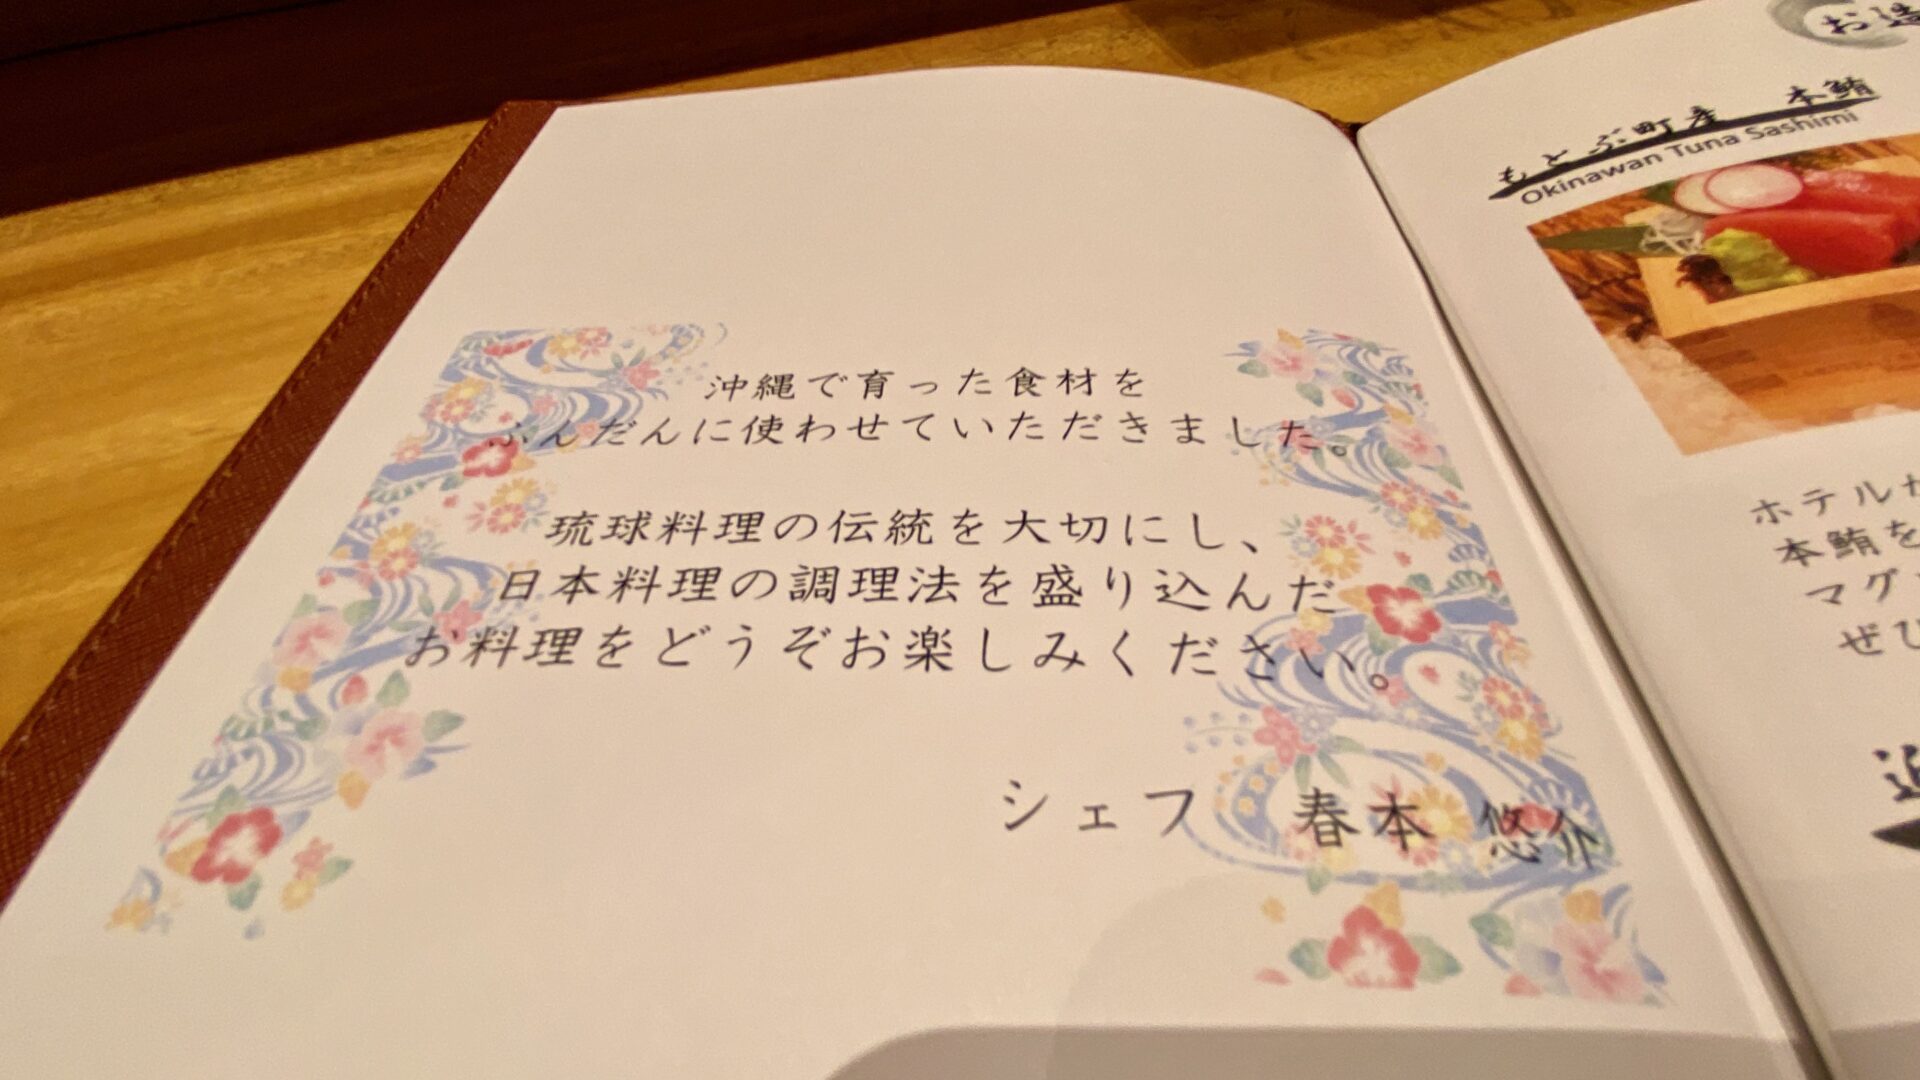 沖縄で育った食材を
ふんだんに使わせていただきました。
琉球料理の伝統を大切にし、
日本料理の調理法を盛り込んだ
お料理をどうぞお楽しみください。
シェフ 春本 悠介
お造
もとぶ町産 本鮪
Okinawan Tuna Sashimi
ホテルか
本鮪を
マグ
ぜひ
近